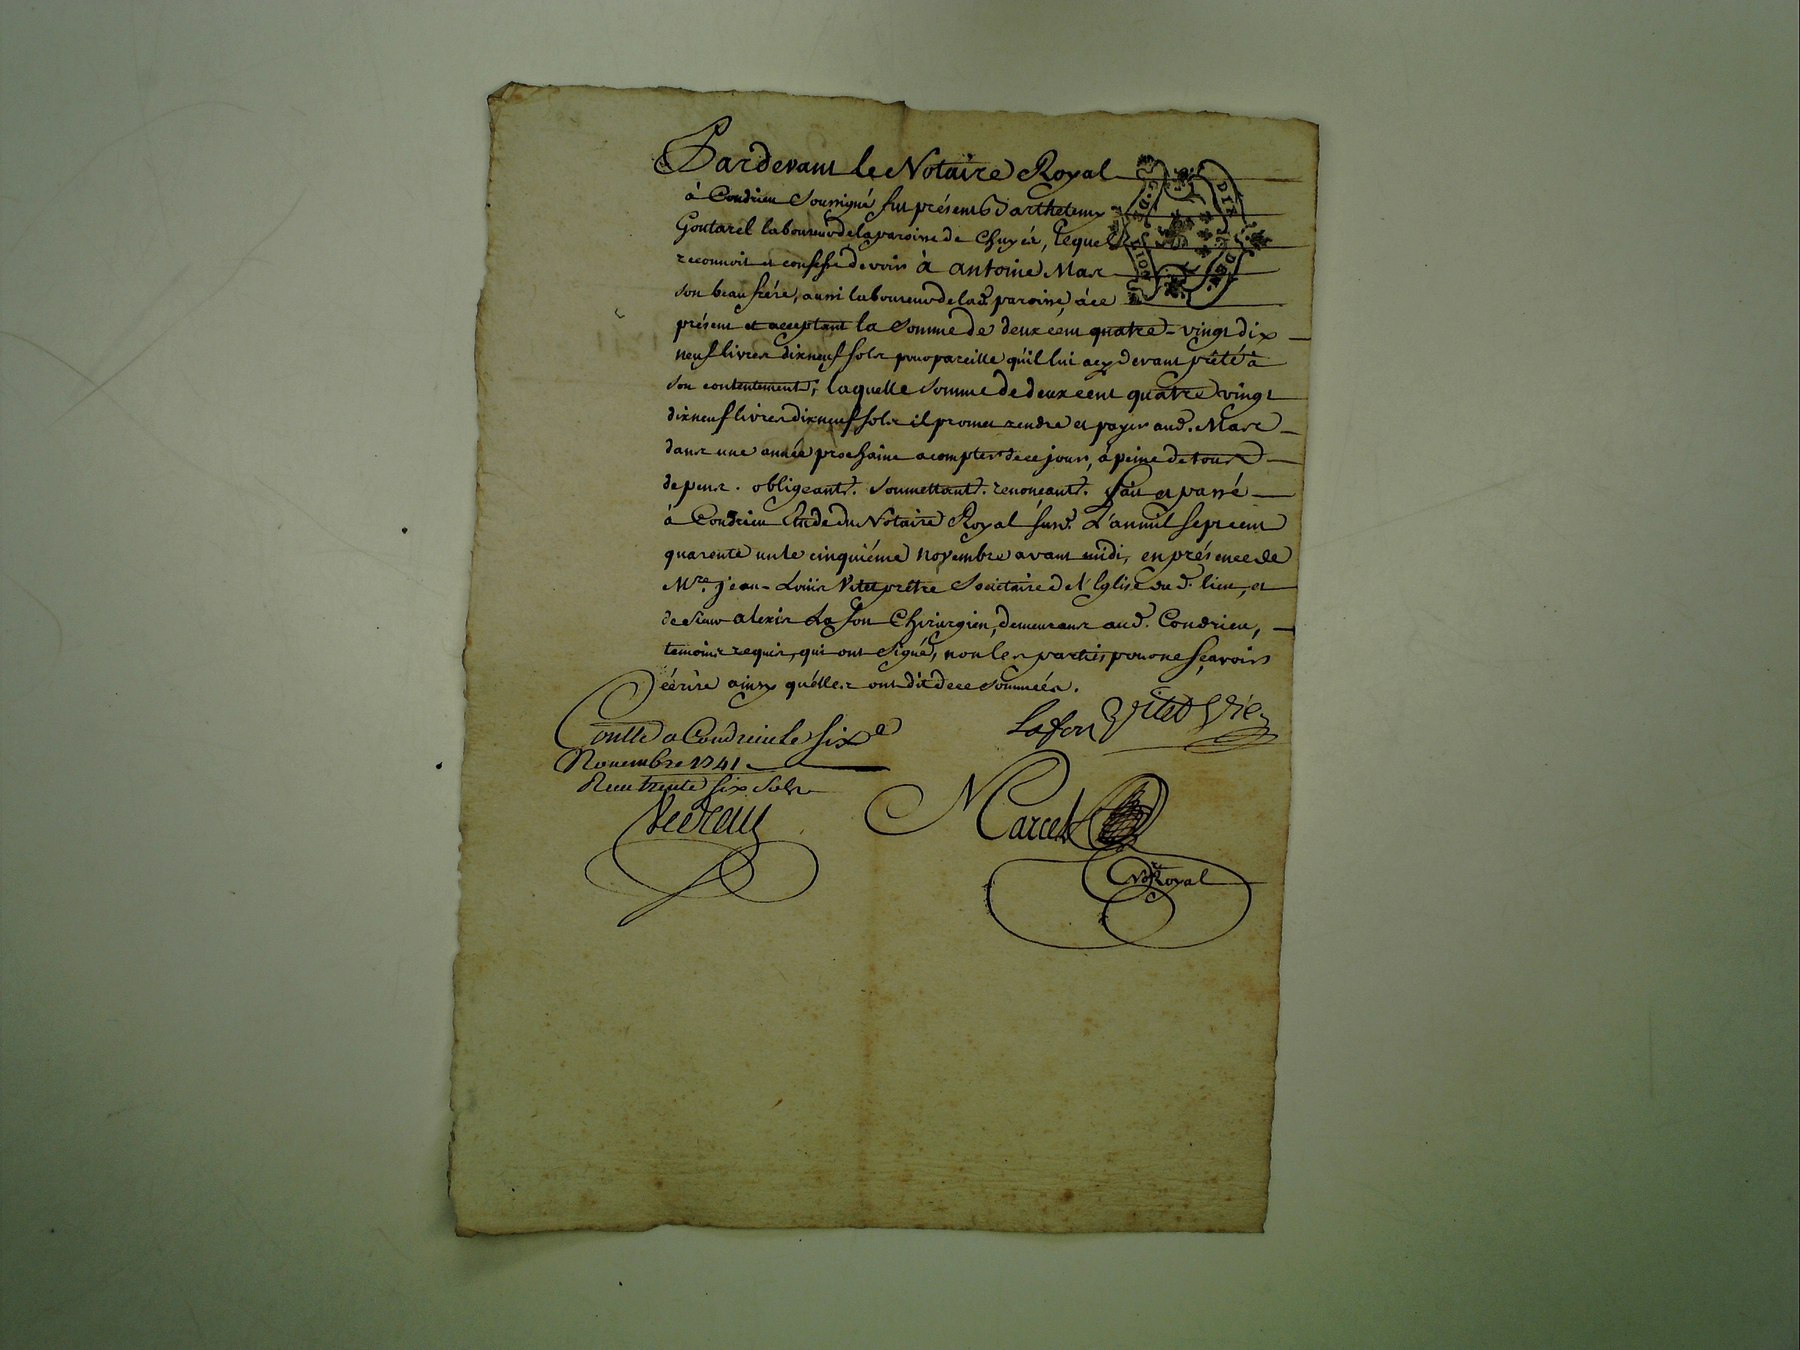 Pardevant le Notaire Royal
à Condrieu Soussigné fut présent Barthelemy
Goutarel laboureur de la paroisse de Chuyér, lequel
reconnoit et confesse devoir à antoine Marc
son beau frére, aussi laboureur de lad. paroisse, áce
présent et acceptant la somme de deux cent quatre-vingt dix
neuf livres dixneuf sols pour pareille qu'il lui a cy devant prêté à
son contentement; laquelle somme de deux cent quatre vingt
dixneuf livres dixneuf sols il promet rendre et payer aud. Marc
dans une année prochaine a compter de ce jour, à peine de tous
depens. obligeant. soumettant. renonceant. fait et passé
à Condrieu Etude du Notaire Royal sus.d L'an mil sept cent
quarente un le cinquiéme novembre avant midi, en présence de
M.re jean-Loüis Vitet prêtre Societaire de l'Eglise du d. lieu, et
de sieur alexis Lafon Chirurgien, demeurant aud. Condrieu,
temoins requis, qui ont signé, non les parties pour ne sçavoir
écrire ainsy qu'elles ont dit de ce sommées.
Lafon Vitet
Conllé a Condrieu le six.e
Novembre 1741
Receu trente six sols
Marcel
No.re Royal
DIX